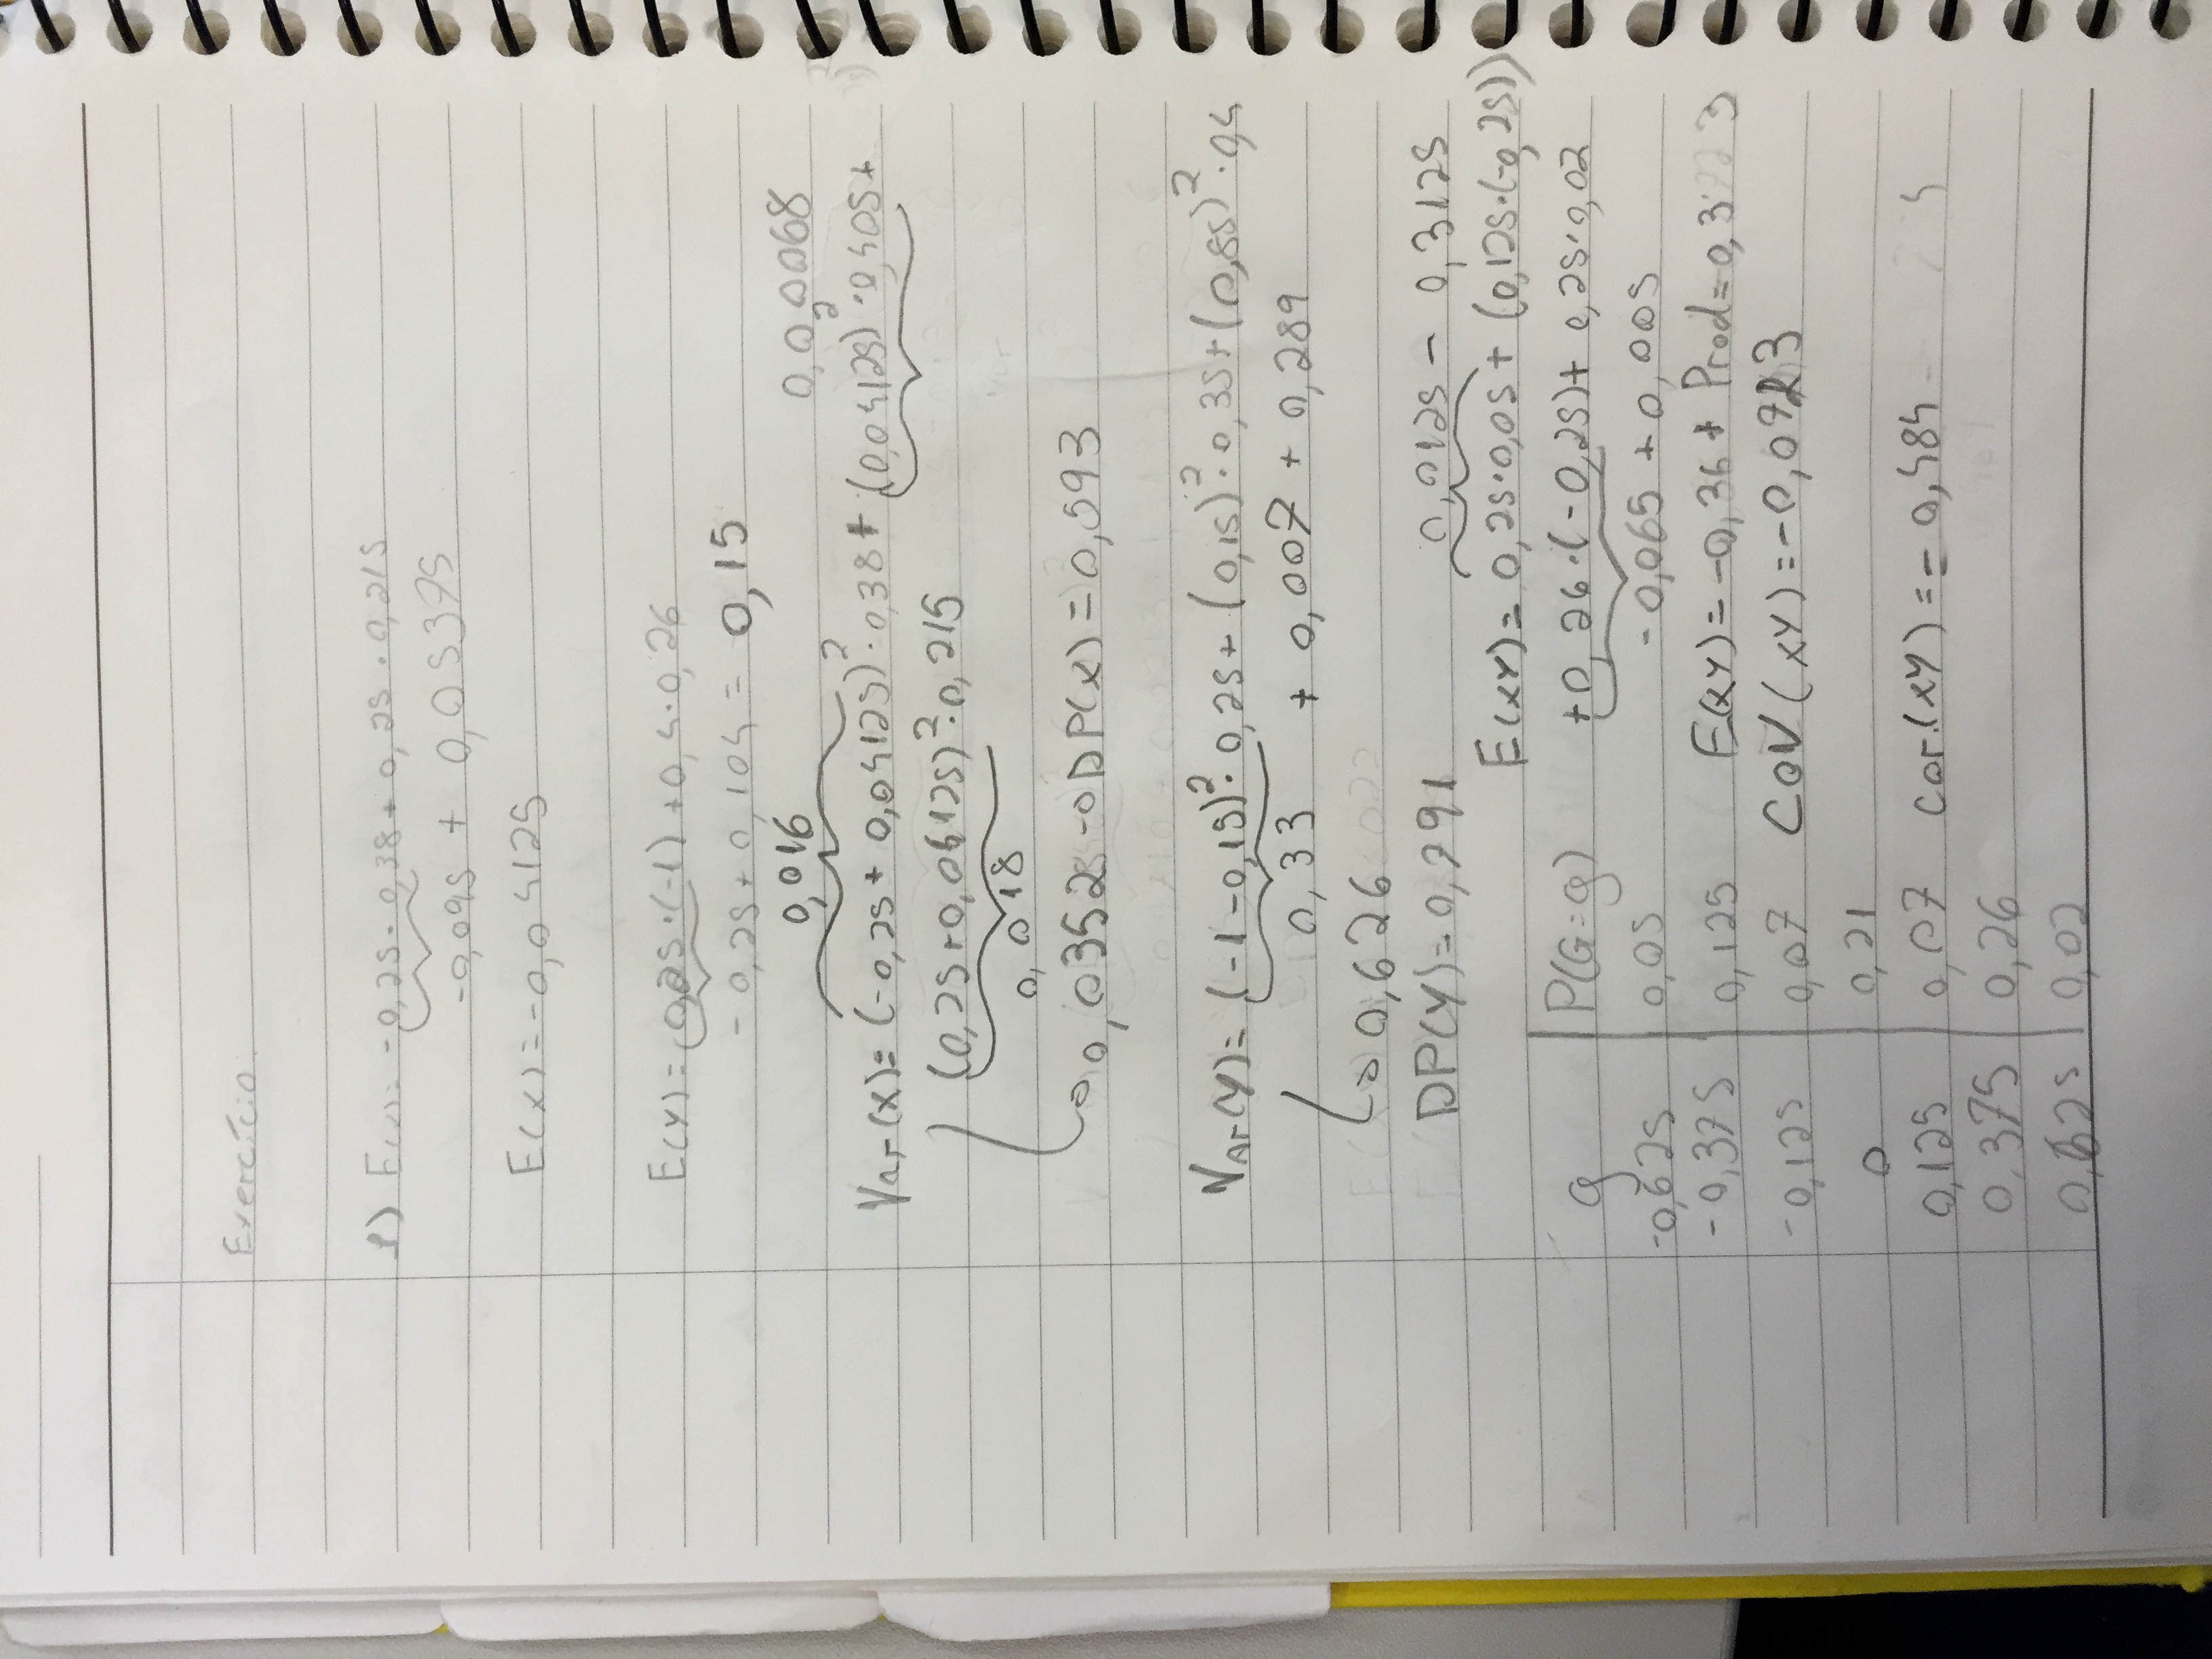 Exercício
1) E(x)= -0,25·0,38+0,25·0,215
-0,095 + 0,05375
E(X)=-0,04125
E(Y)=0,25·(-1)+0,4·0,26
-0,25+0,104= 0,15
0,016 0,00068
Var(X)=(-0,25+0,04125)²·0,38+(0,04125)²·0,405+
(0,25+0,04125)²·0,215
0,018
0,0352 → DP(X)=0,593
Var(Y)=(-1-0,15)²·0,25+(0,15)²·0,35+(0,85)²·0,4
0,33 + 0,007 + 0,289
→ 0,626
DP(Y)=0,791
0,0125 - 0,3125
E(XY)=0,25·0,05+(0,125·(-0,25))
+0,26·(-0,25)+0,25·0,02
-0,065+0,005
E(XY)=-0,36 + Prod=0,3
COV(XY)=-0,0723
Cor.(XY)=-0,484
g P(G=g)
-0,625 0,05
-0,375 0,125
-0,125 0,07
0 0,21
0,125 0,07
0,375 0,26
0,625 0,02